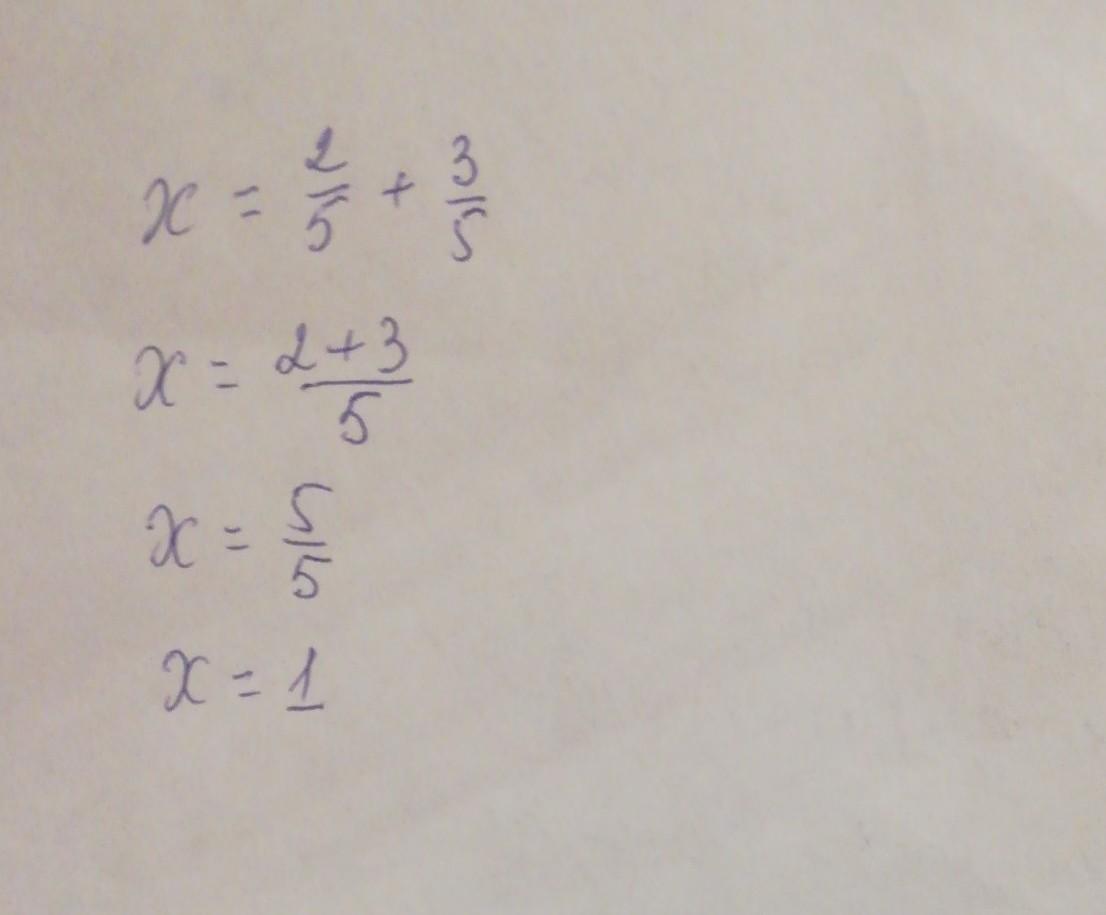 x = 2/5 + 3/5
x = (2+3)/5
x = 5/5
x = 1